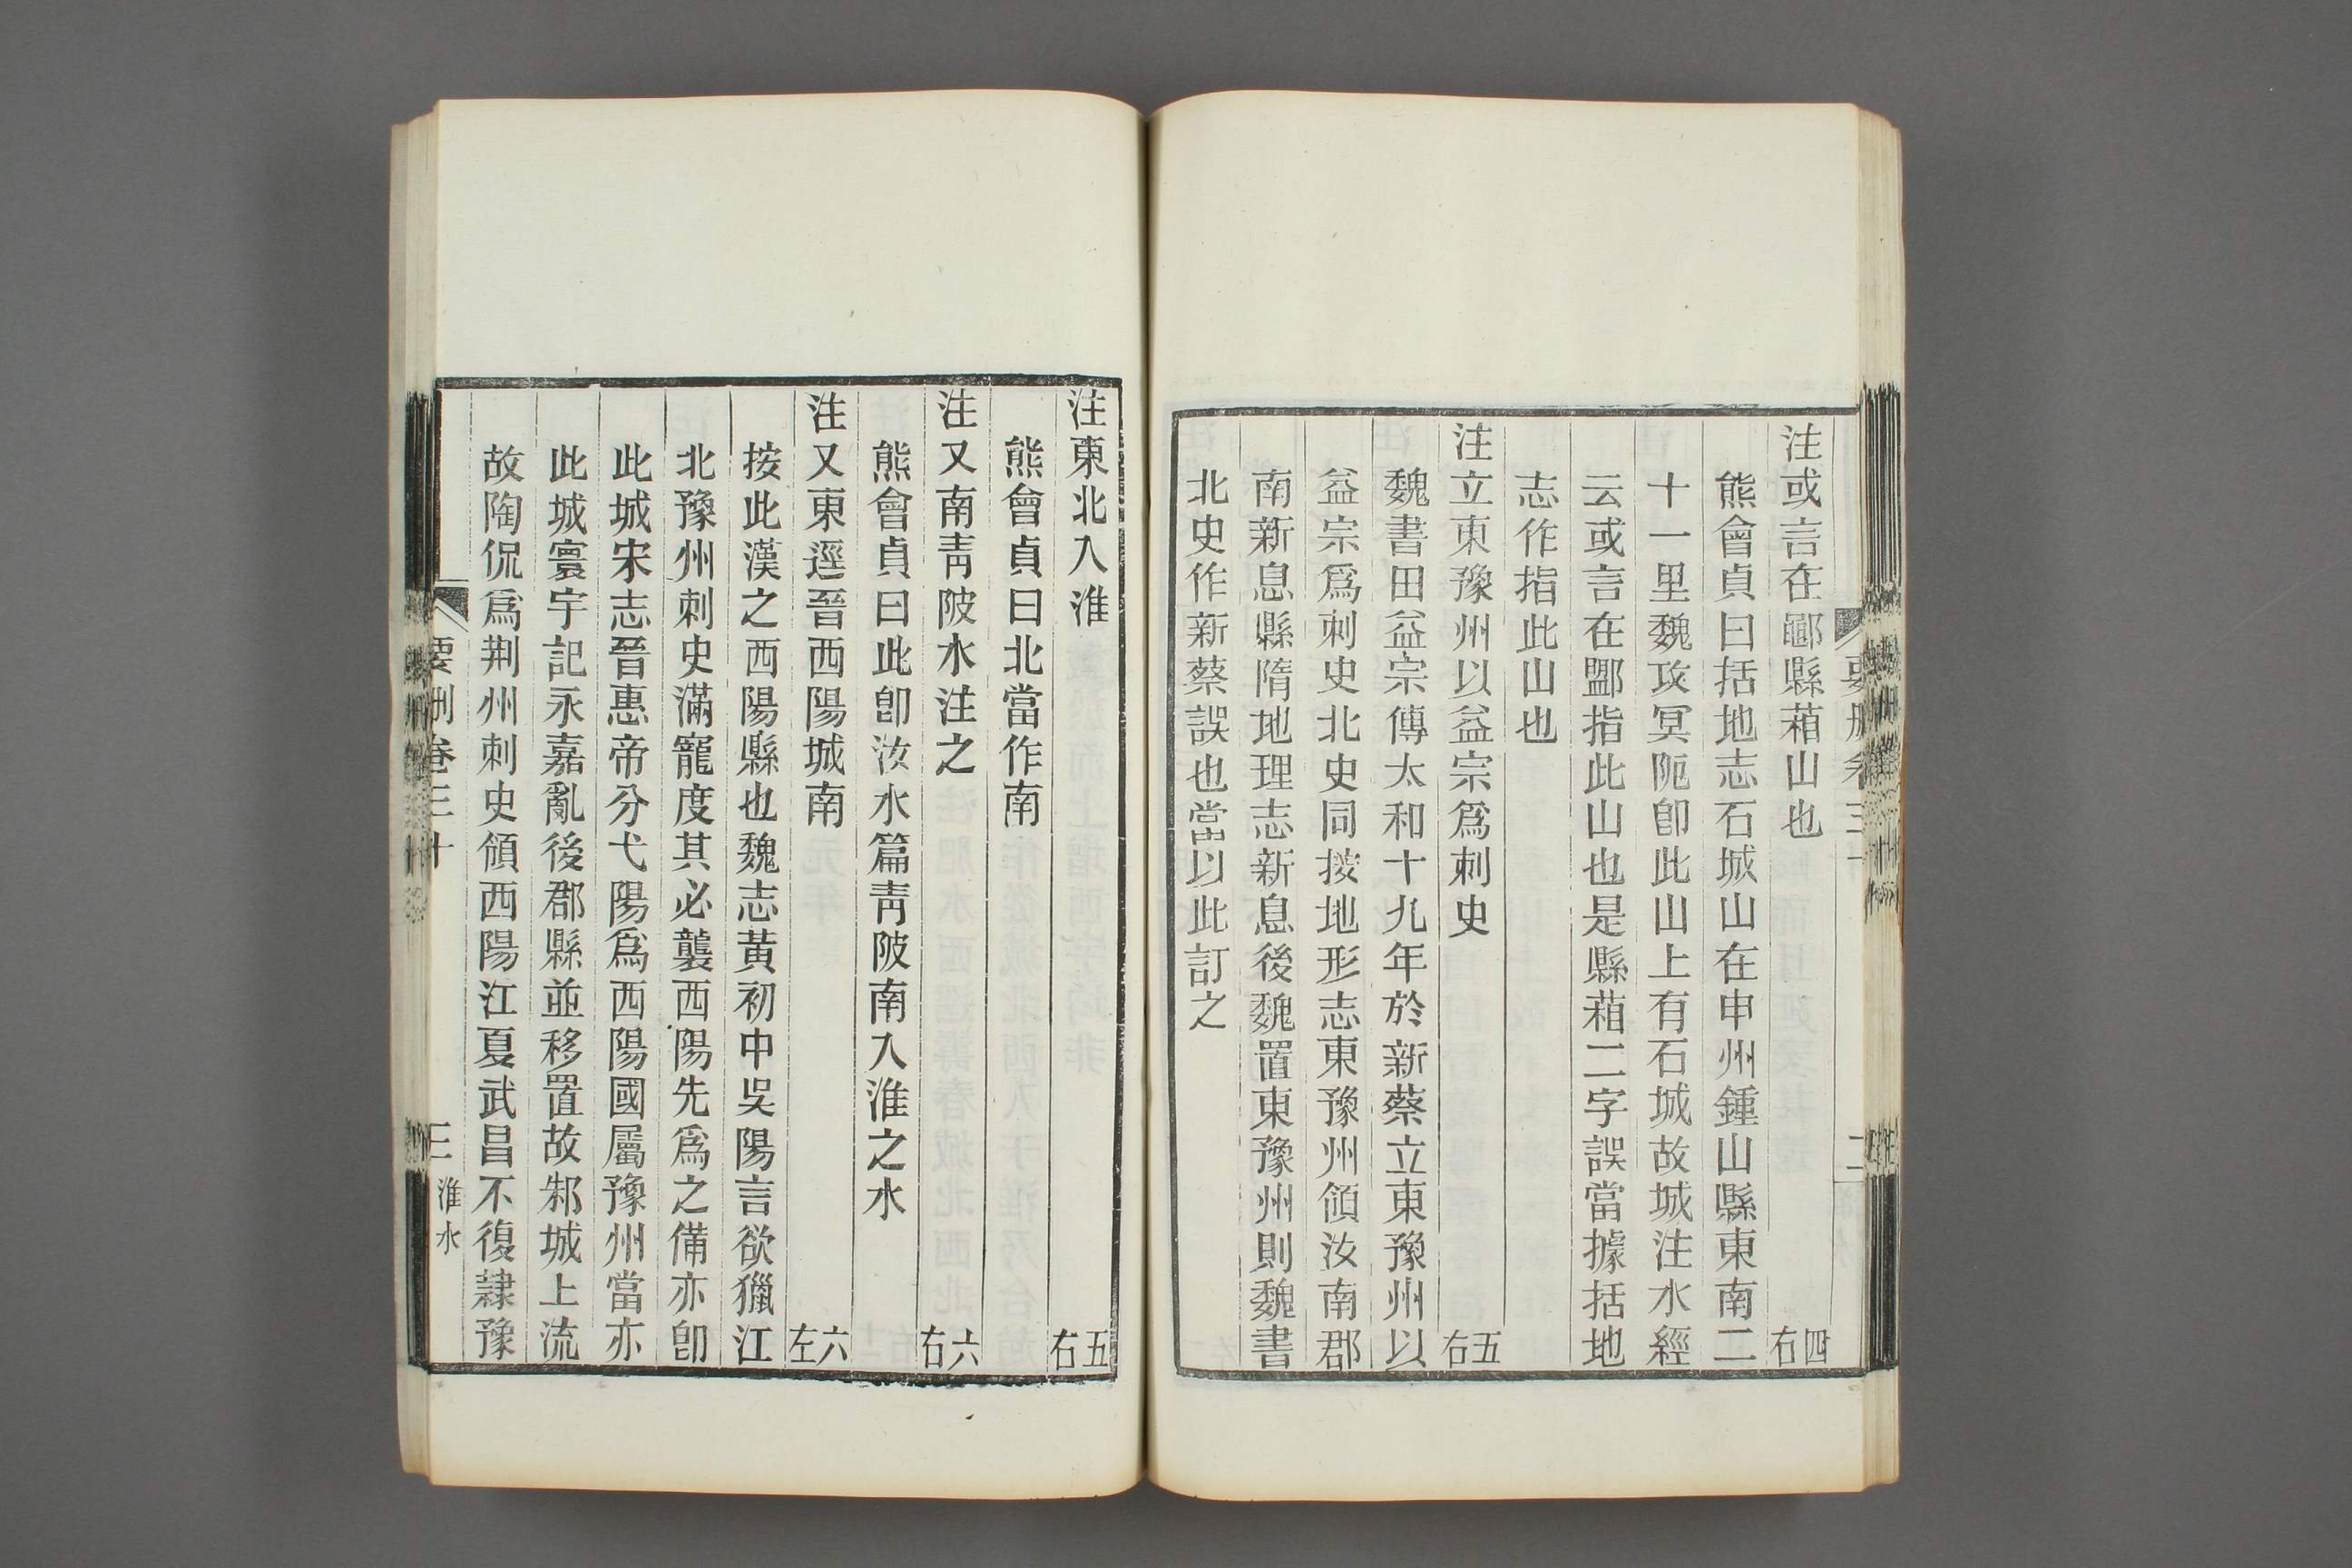 注或言在鄳縣葙山也 四右
熊會貞曰括地志石城山在申州鍾山縣東南二
十一里魏攻冥阨卽此山上有石城故城注水經
云或言在鄳指此山也是縣葙二字誤當據括地
志作指此山也
注立東豫州以益宗爲刺史 五右
魏書田益宗傳太和十九年於新蔡立東豫州以
益宗爲刺史北史同按地形志東豫州領汝南郡
南新息縣隋地理志新息後魏置東豫州則魏書
北史作新蔡誤也當以此訂之
注東北入淮 五右
熊會貞曰北當作南
注又南靑陂水注之 六右
熊會貞曰此卽汝水篇靑陂南入淮之水
注又東逕晉西陽城南 六左
按此漢之西陽縣也魏志黃初中吳陽言欲獵江
北豫州刺史滿寵度其必襲西陽先爲之備亦卽
此城宋志晉惠帝分弋陽爲西陽國屬豫州當亦
此城寰宇記永嘉亂後郡縣並移置故邾城上流
故陶侃爲荆州刺史領西陽江夏武昌不復隸豫
要刪卷三十 三 淮水